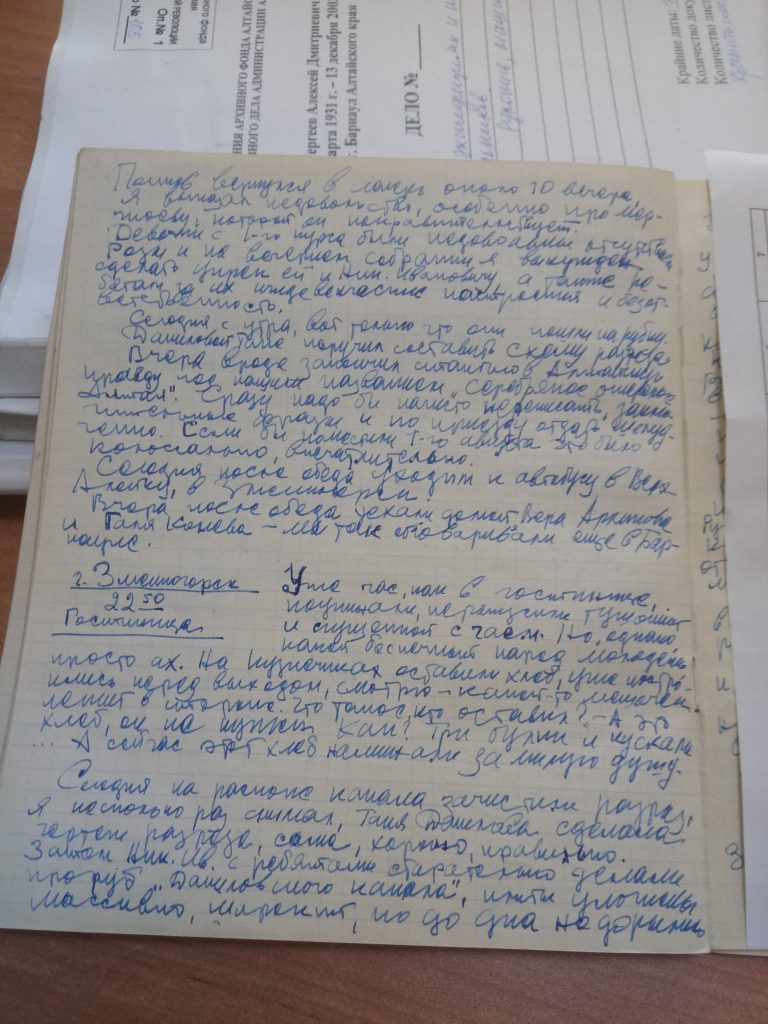 ного фонда
ной
ой революции
Оп.№ 1
о № 405
НИЯ АРХИВНОГО ФОНДА АЛТАЙС
ВНОГО ДЕЛА АДМИНИСТРАЦИИ А
ергеев Алексей Дмитриевич
арта 1931 г. – 13 декабря 2002
г. Барнаул Алтайского края
ДЕЛО №
экспедициях и и
Рукопись, маши
Крайние даты:
Количество доку
Количество лист
вернулся в лагерь около 10 вечера,
я высказал недовольство, особенно про
которой он покровительствует.
Девочки с 1-го курса были недовольны отсутствием
Розы и на вечернем собрании я вынужден
сделать упрек ей и Ник. Ивановичу, а также ре-
бятам за их иждивенческие настроения и безот-
ветственность.
Сегодня с утра, вот только что они пошли на рубку.
Даниловой Тане поручил составить схему разреза
Вчера вроде закончил статью в Алтайскую
правду под названием "Серебряное ожерелье
Алтая". Сразу надо бы начисто переписать,
и по приезду отдать
Если бы поместили 1-го августа это было б
колоссально, впечатлительно.
Сегодня после обеда уходим к автобусу в Верх-
Алейку, в Змеиногорск.
Вчера после обеда уехали домой Вера Архипова
и Галя Конева – мы так сговаривались еще в Бар-
науле.
г. Змеиногорск
22 50
Гостиница
Уже час, как в гостинице,
поужинали, перекусили тушенкой
и сгущенкой с чаем. Но, однако
какой беспечный народ молодежь
просто ах. На оставили хлеб, уже
лись перед выходом, смотрю – какой-то мешочек
лежит в стороне. Что такое, кто оставил? – А это
хлеб, он не нужен. Как? Три булки и кусками
... А сейчас этот хлеб наминали за милую душу.
Сегодня на раскопе канала зачистили разрез,
я несколько раз снимал, Таня Данилова сделала
чертеж разреза, сама, хорошо, правильно.
Затем Ник. Ив. с ребятами старательно делали
"Даниловского канала",
массивно, широкий, но до дна не дорылись